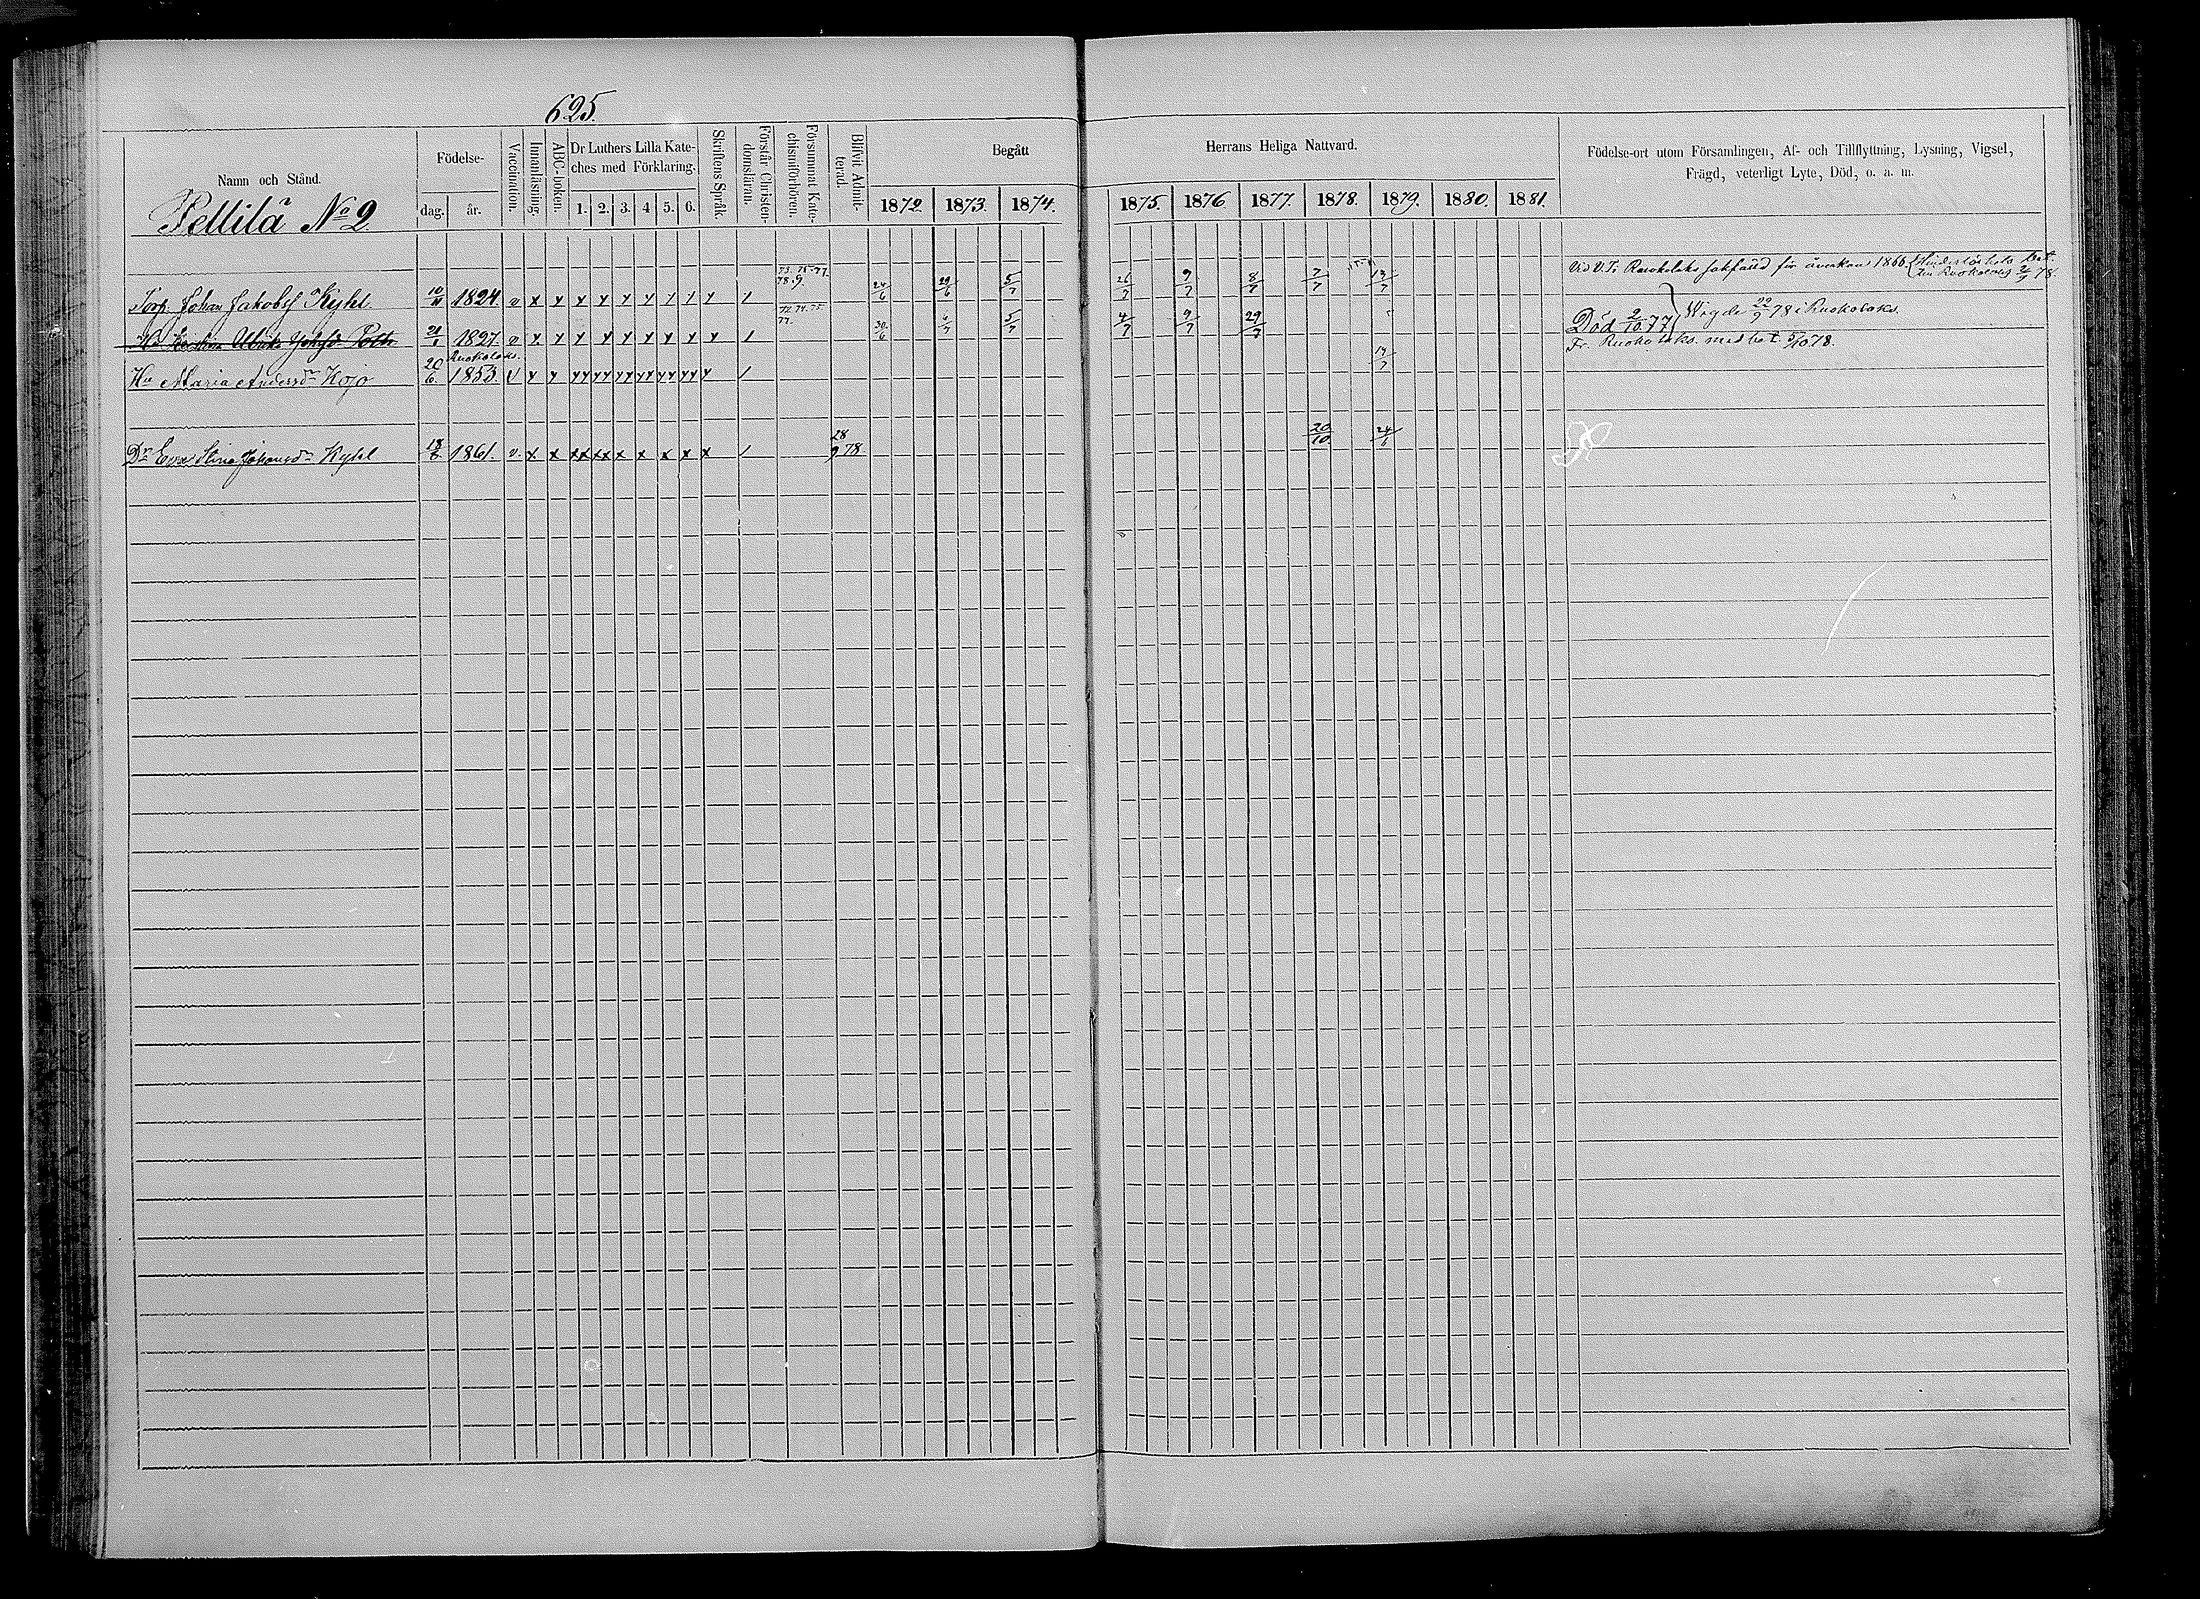 625.
Namn och Stånd.
Födelse-
dag. år.
Vaccination.
Innanläsning.
ABC-boken.
Dr Luthers Lilla Kate-
ches med Förklaring.
1. 2. 3. 4 5. 6.
Skriftens Språk.
Förstår Christen-
domsläran.
Försummat Kate-
chismiförhören.
Blifvit Admit-
terad.
Begått
Herrans Heliga Nattvard.
1872. 1873. 1874. 1875. 1876 1877. 1878. 1879. 1880. 1881.
Födelse-ort utom Församlingen, Af- och Tillflyttning, Lysning, Vigsel,
Frägd, veterligt Lyte, Död, o. a. m.
Pellilä No 2
73. 75-77.
78.9.
Torp. Johan Jakobss Kyhl 10/11 1824. v x y y y y y / / y / 24/6 29/6 5/7 26/7 9/7 8/7 7/7 13/7
72.74.75
77.
Ulrika 21/1 1827. v y y y y y y y y y / 30/6 5/7 4/7 9/7 29/7 Död 2/10 77 Wigde 22/9 78 i Ruokolaks.
Ruokolaks.
Hu Maria Andersdr Kojo 20/6. 1853. v y y yy yy yy yy yy yy y / 14/7 Fr. Ruokolaks. med bet. 5/10 78.
Dr Eva Stina Johansdr Kyhl 18/6 1861. v. x x xx xx x x x x x / 28/9 78 20/10 24/6